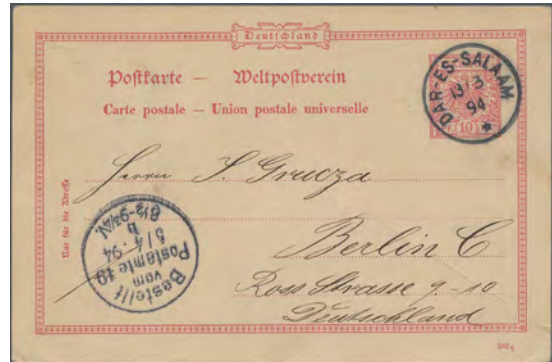 Deutschland
Postkarte — Weltpostverein
Carte postale — Union postale universelle
10
DAR-ES-SALAAM
13/3
94
*
Nur für die Adresse
Herrn S Grucza
Berlin C
Ross Strasse 9-10
Deutschland
Bestellt
vom
Postamte 19
5/4.94
8½-9¾N.